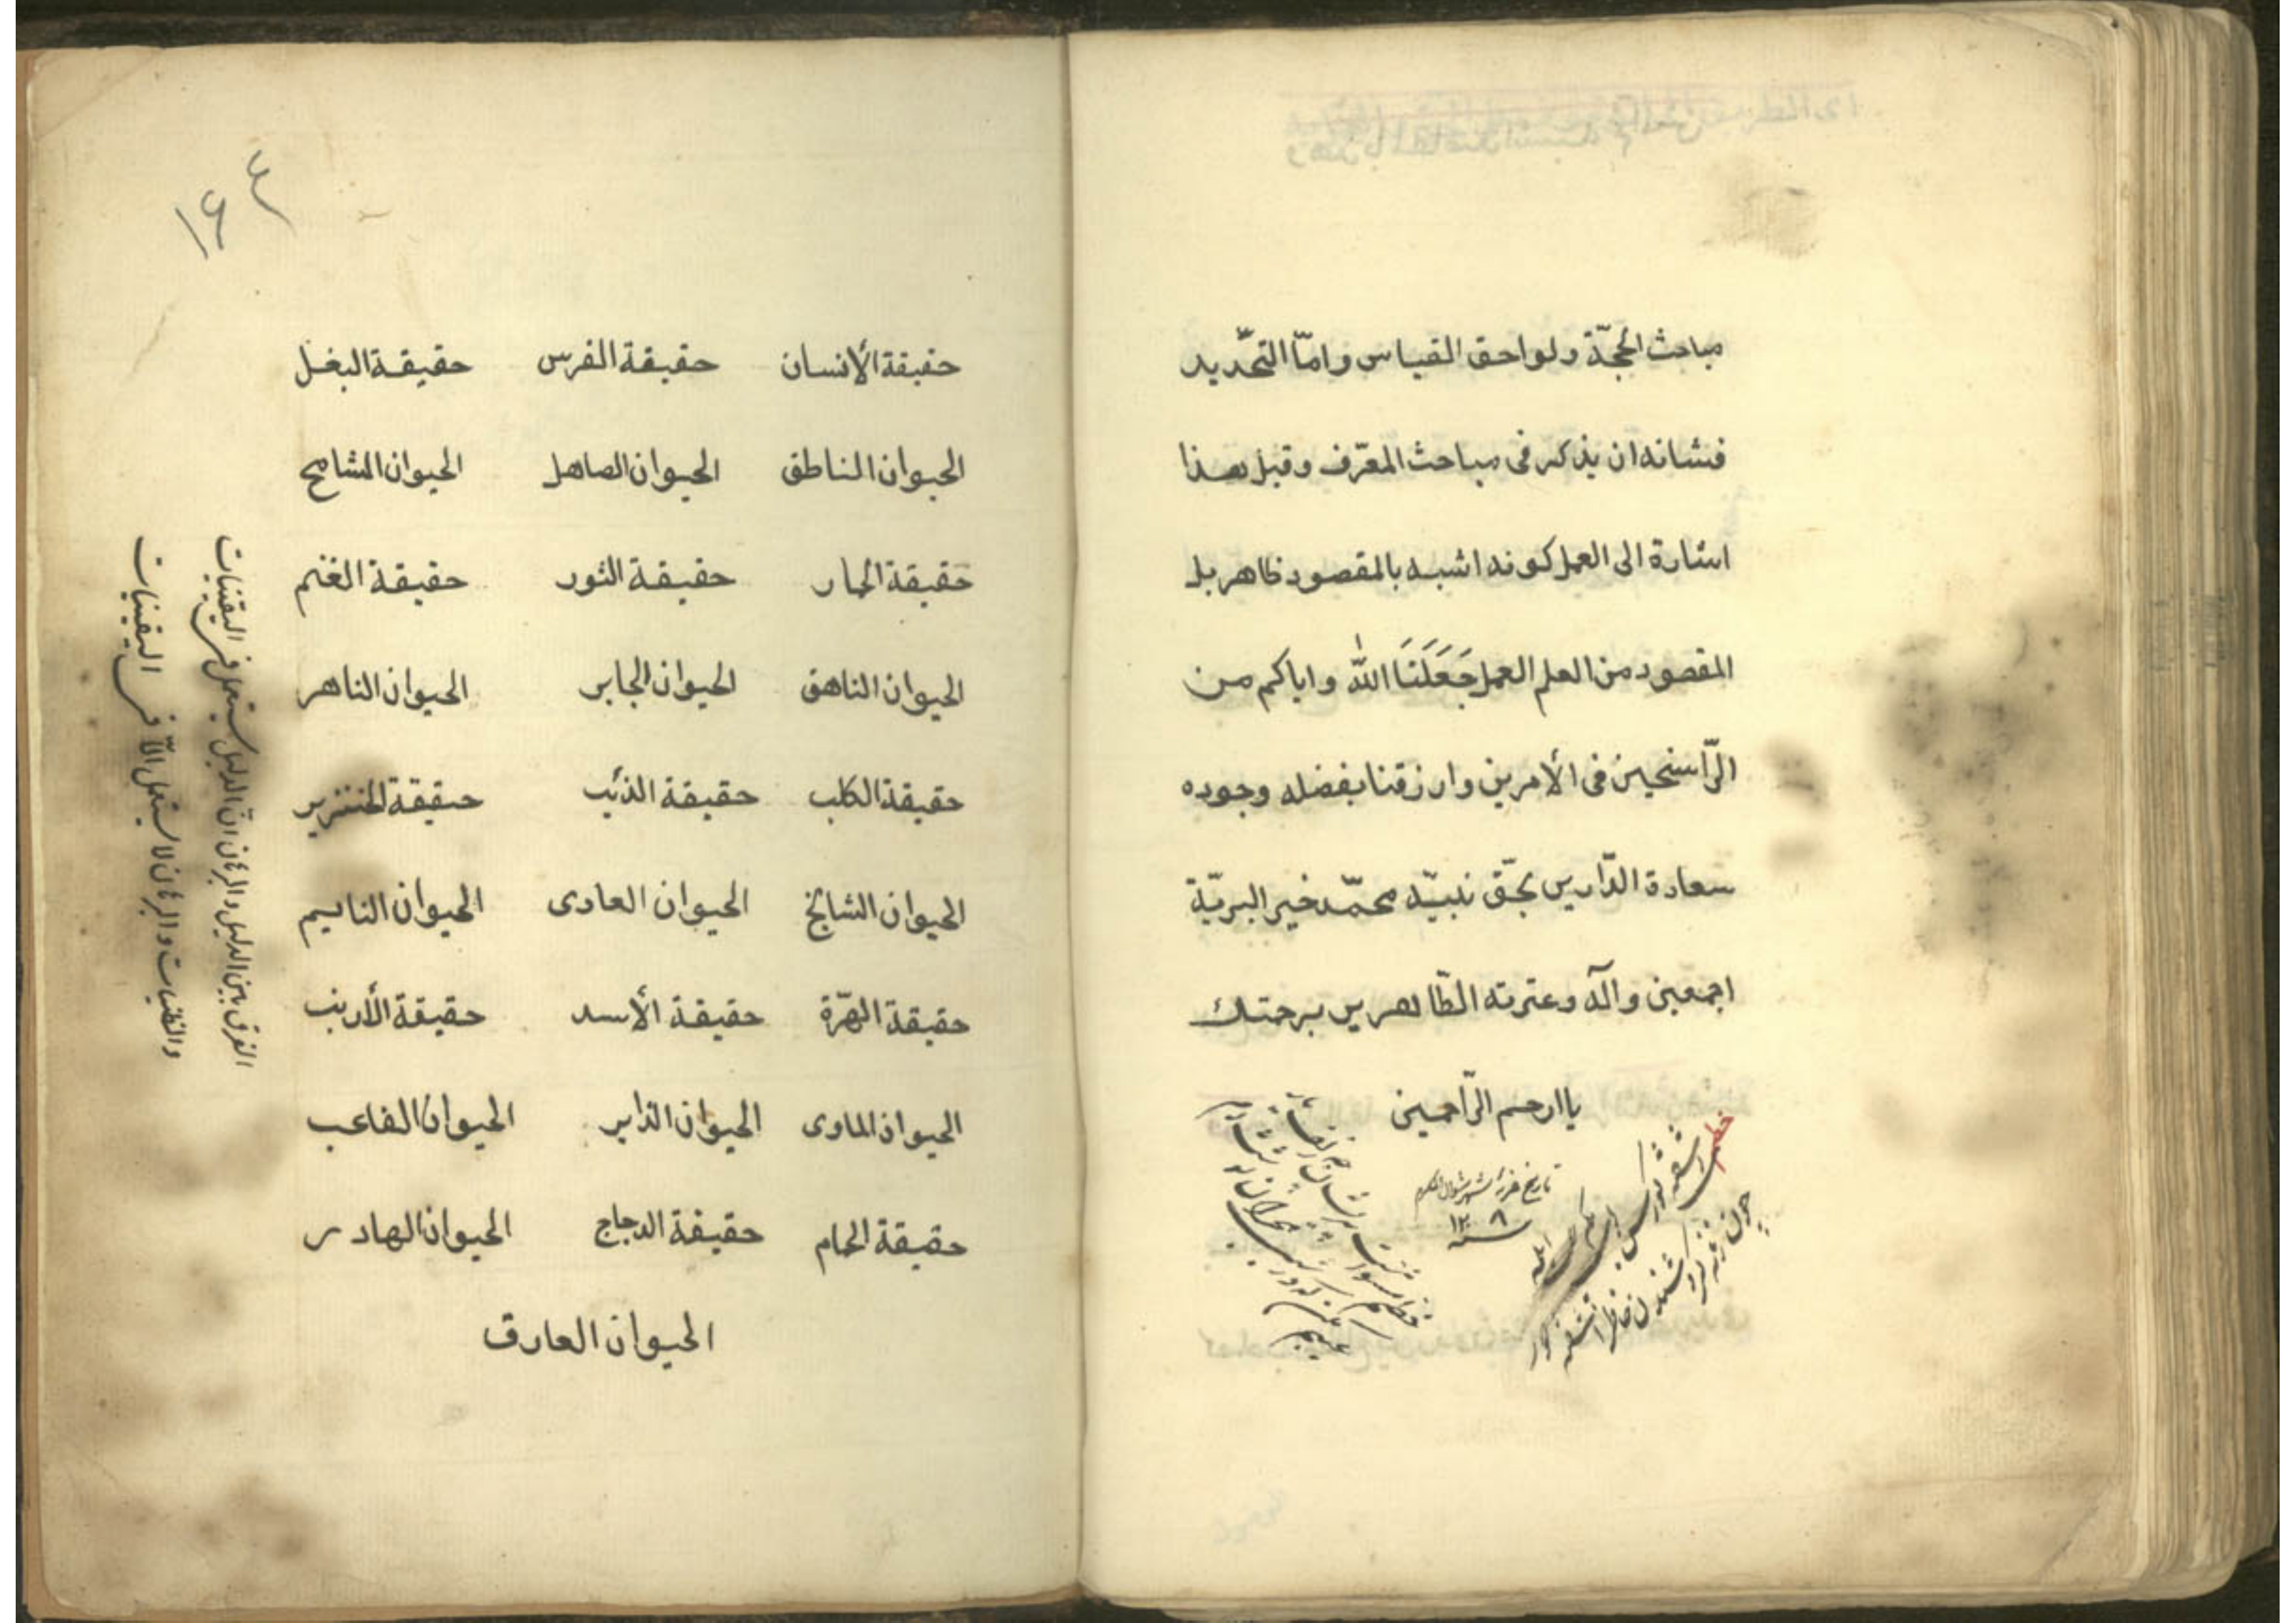 مباحث الحجّة ولواحق القياس وامّا التحّديد
فشانه ان يذكر فى مباحث المعّرف وقبل هذا
اشارة الى العمل كونه اشبه بالمقصود ظاهر بل
المقصود من العلم العمل جَعَلَنَا اللّٰه واياكم من
الرّاسخين فى الأمرين وارزقنا بفضله وجوده
سعادة الدّارين بحقّ نبيّه محمّد خير البريّة
اجمعين وآله وعترته الطّاهرين برحمتك
ياارحم الرّاحمين
تاريخ غرۀ شهر شوال المكرم
١٣٠٨
حقيقة الأنسان حقيقة الفرس حقيقة البغل
الحيوان الناطق الحيوان الصاهل الحيوان الشامخ
حقيقة الحمار حقيقة الثور حقيقة الغنم
الحيوان الناهق الحيوان الجابر الحيوان الناهر
حقيقة الكلب حقيقة الذئب حقيقة الخنزير
الحيوان الشائخ الحيوان العادى الحيوان النايسم
حقيقة الهّرة حقيقة الأسد حقيقة الأرنب
الحيوان الماوى الحيوان الذاير الحيوان الفاعب
حقيقة الحمام حقيقة الدجاج الحيوان الهادر
الحيوان العارق
الفرق بين الدليل والبرهان انّ الدليل يستعمل فى اليقنيات
والظنيات والبرهان لا يستعمل الّا فى اليقينيات